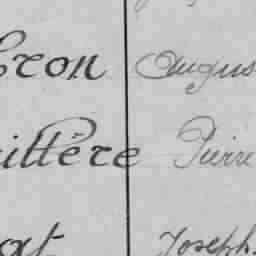 éron Augus
illère Pierre
at Joseph